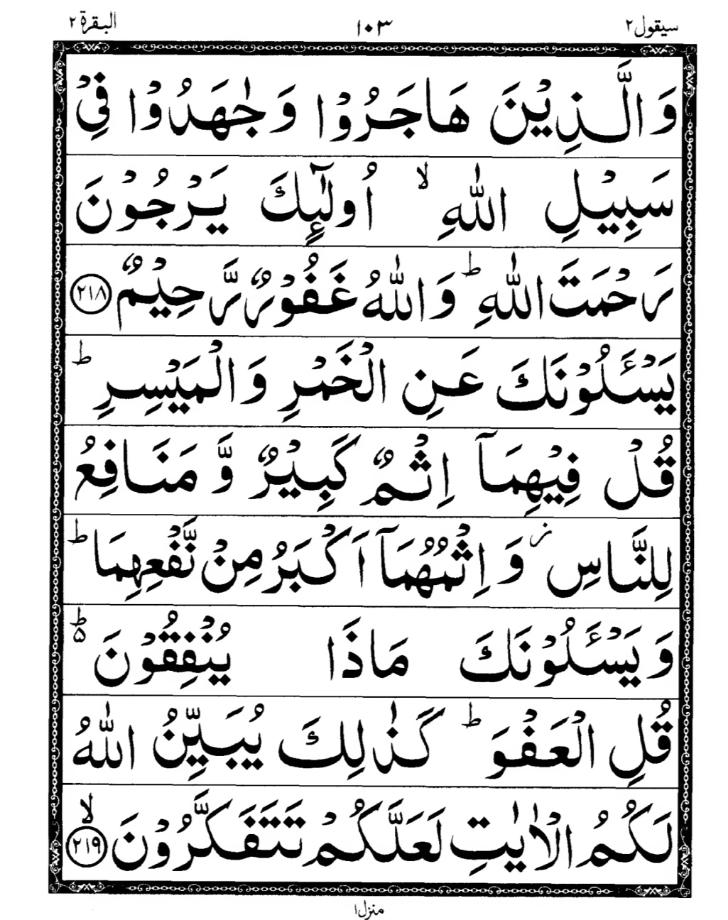 سيقول٢ ١٠٣ البقرة ٢
وَالَّذِيْنَ هَاجَرُوْا وَجٰهَدُوْا فِيْ
سَبِيْلِ اللّٰهِ ۙ اُولٰٓئِكَ يَرْجُوْنَ
رَحْمَتَ اللّٰهِ ؕ وَاللّٰهُ غَفُوْرٌ رَّحِيْمٌ ﴿٢١٨﴾
يَسْـَٔلُوْنَكَ عَنِ الْخَمْرِ وَالْمَيْسِرِ ؕ
قُلْ فِيْهِمَآ اِثْمٌ كَبِيْرٌ وَّمَنَافِعُ
لِلنَّاسِ ز وَاِثْمُهُمَآ اَكْبَرُ مِنْ نَّفْعِهِمَا ؕ
وَيَسْـَٔلُوْنَكَ مَاذَا يُنْفِقُوْنَ ۵ؕ
قُلِ الْعَفْوَ ؕ كَذٰلِكَ يُبَيِّنُ اللّٰهُ
لَكُمُ الْاٰيٰتِ لَعَلَّكُمْ تَتَفَكَّرُوْنَ ۙ﴿٢١٩﴾
منزل١